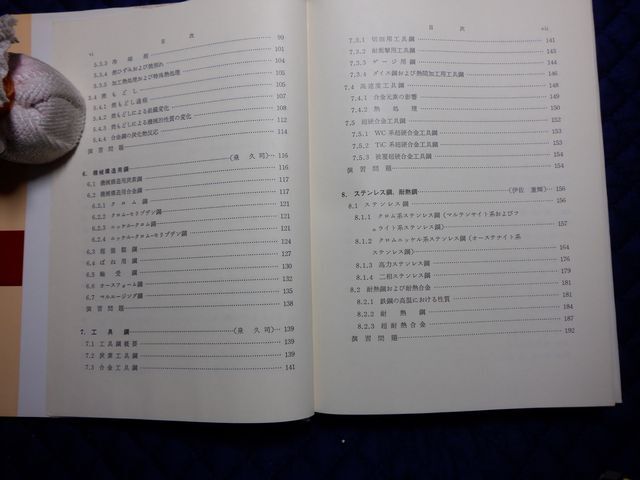 vi
目 次
5.3.3 冷 却 剤 99
5.3.4 焼ひずみおよび焼割れ 101
5.3.5 加工熱処理および特殊熱処理 104
5.4 焼 も ど し 105
5.4.1 焼もどし過程 105
5.4.2 焼もどしによる組織変化 107
5.4.3 焼もどしによる機械的性質の変化 108
5.4.4 合金鋼の炭化物反応 112
演 習 問 題 114
6. 機械構造用鋼 (泉 久司)… 116
6.1 機械構造用炭素鋼 116
6.2 機械構造用合金鋼 117
6.2.1 ク ロ ム 鋼 117
6.2.2 クロム-モリブデン鋼 121
6.2.3 ニッケル-クロム鋼 121
6.2.4 ニッケル-クロム-モリブデン鋼 121
6.3 超 強 靱 鋼 124
6.4 ば ね 用 鋼 127
6.5 軸 受 鋼 130
6.6 オースフォーム鋼 132
6.7 マルエージング鋼 135
演 習 問 題 138
7. 工 具 鋼 (泉 久司)… 139
7.1 工具鋼概要 139
7.2 炭素工具鋼 139
7.3 合金工具鋼 141
目 次
vii
7.3.1 切削用工具鋼 141
7.3.2 耐衝撃用工具鋼 144
7.3.3 ゲージ用鋼 144
7.3.4 ダイス鋼および熱間加工用工具鋼 146
7.4 高速度工具鋼 148
7.4.1 合金元素の影響 149
7.4.2 熱 処 理 150
7.5 超硬合金工具鋼 152
7.5.1 WC 系超硬合金工具鋼 153
7.5.2 TiC 系超硬合金工具鋼 154
7.5.3 被覆超硬合金工具鋼 154
演 習 問 題 154
8. ステンレス鋼，耐熱鋼 (伊佐 重輝)… 156
8.1 ステンレス鋼 156
8.1.1 クロム系ステンレス鋼 (マルテンサイト系およびフ
ェライト系ステンレス鋼) 157
8.1.2 クロムニッケル系ステンレス鋼 (オーステナイト系
ステンレス鋼) 164
8.1.3 高力ステンレス鋼 176
8.1.4 二相ステンレス鋼 179
8.2 耐熱鋼および耐熱合金 181
8.2.1 鉄鋼の高温における性質 181
8.2.2 耐 熱 鋼 184
8.2.3 超耐熱合金 187
演 習 問 題 192